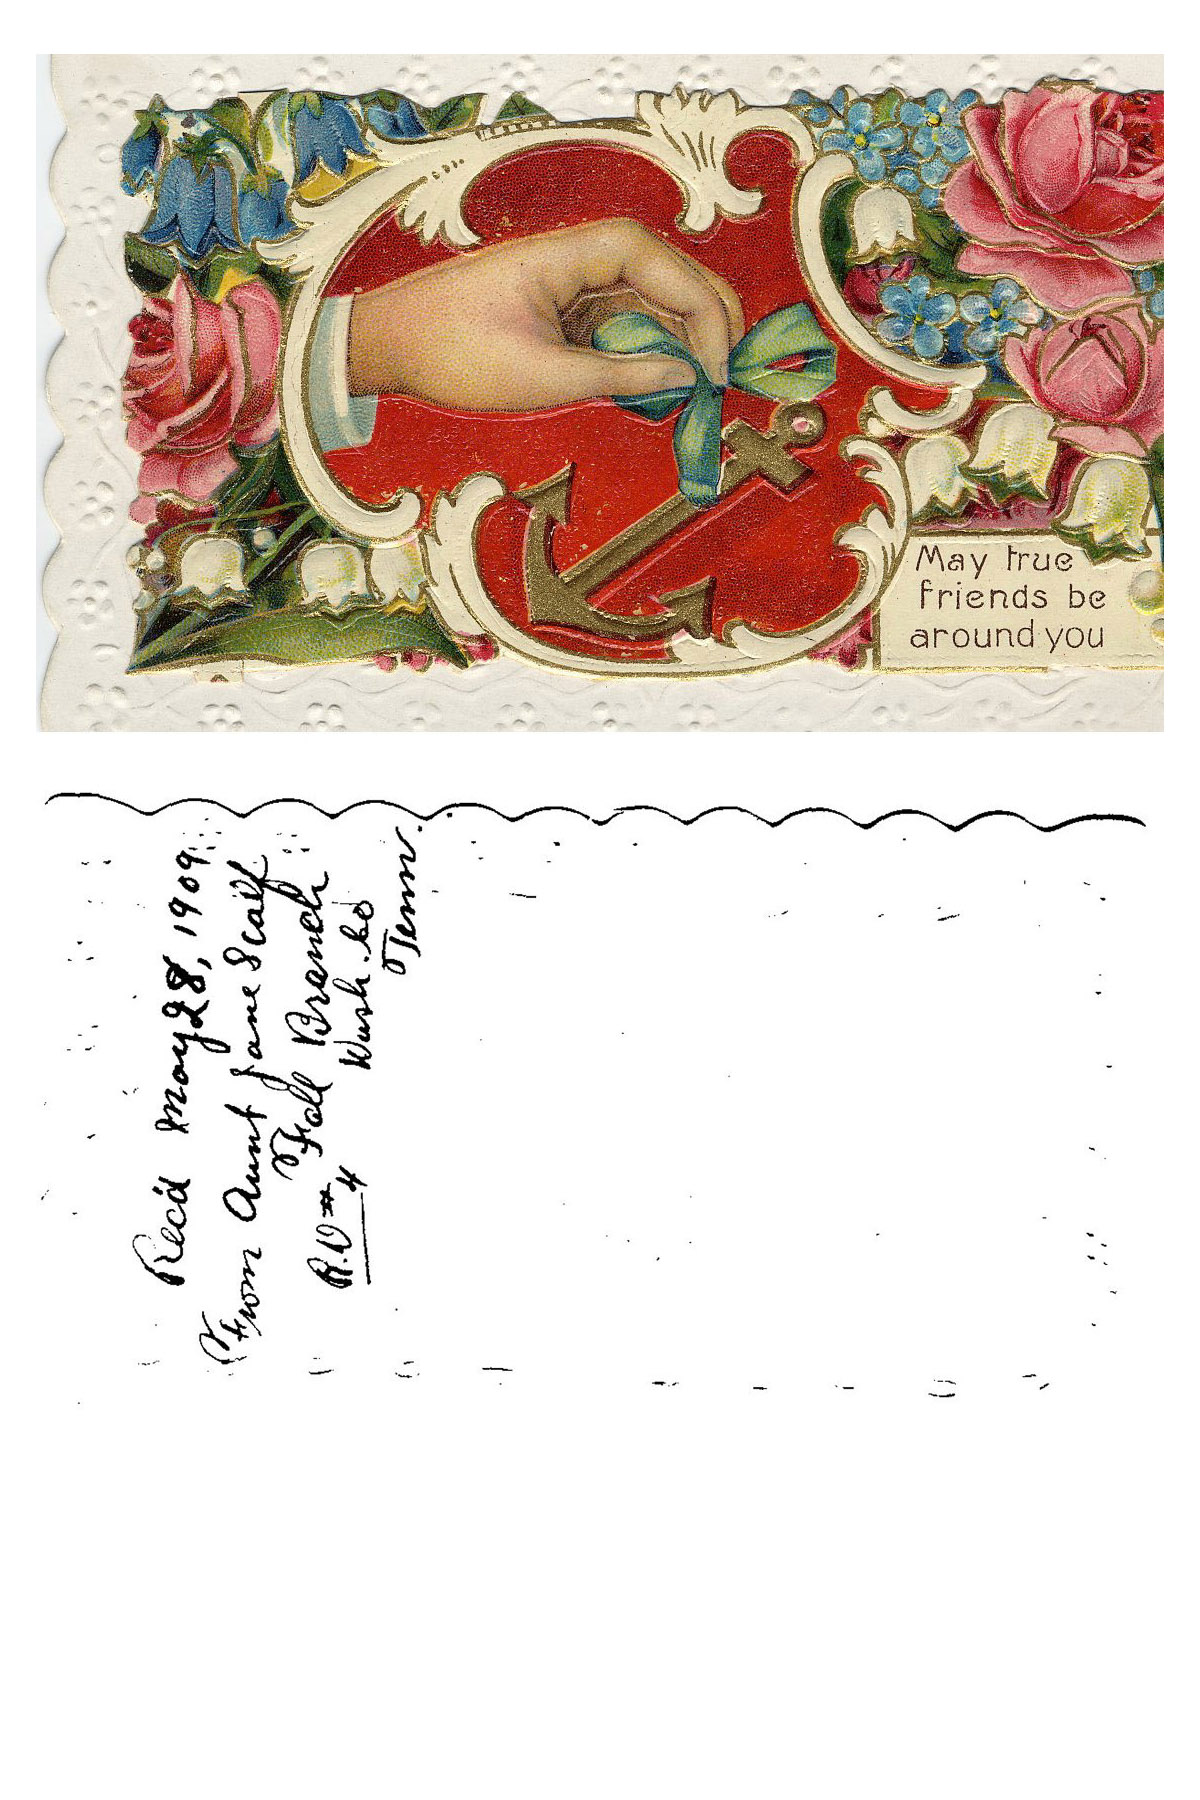 May true
friends be
around you
Rec'd May 28, 1909
From Aunt Jane Scalf
Fall Branch
R.D #4 Wash. Co
Tenn.